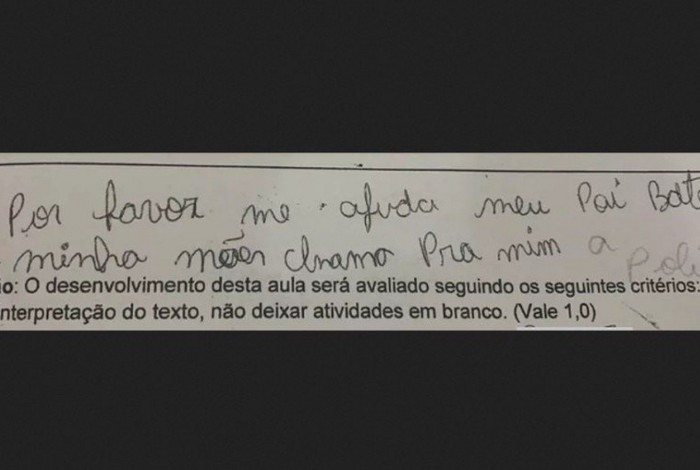 Por favor me ajuda meu Pai Bate
minha mãe chama Pra mim a Poli
io: O desenvolvimento desta aula será avaliado seguindo os seguintes critérios:
nterpretação do texto, não deixar atividades em branco. (Vale 1,0)